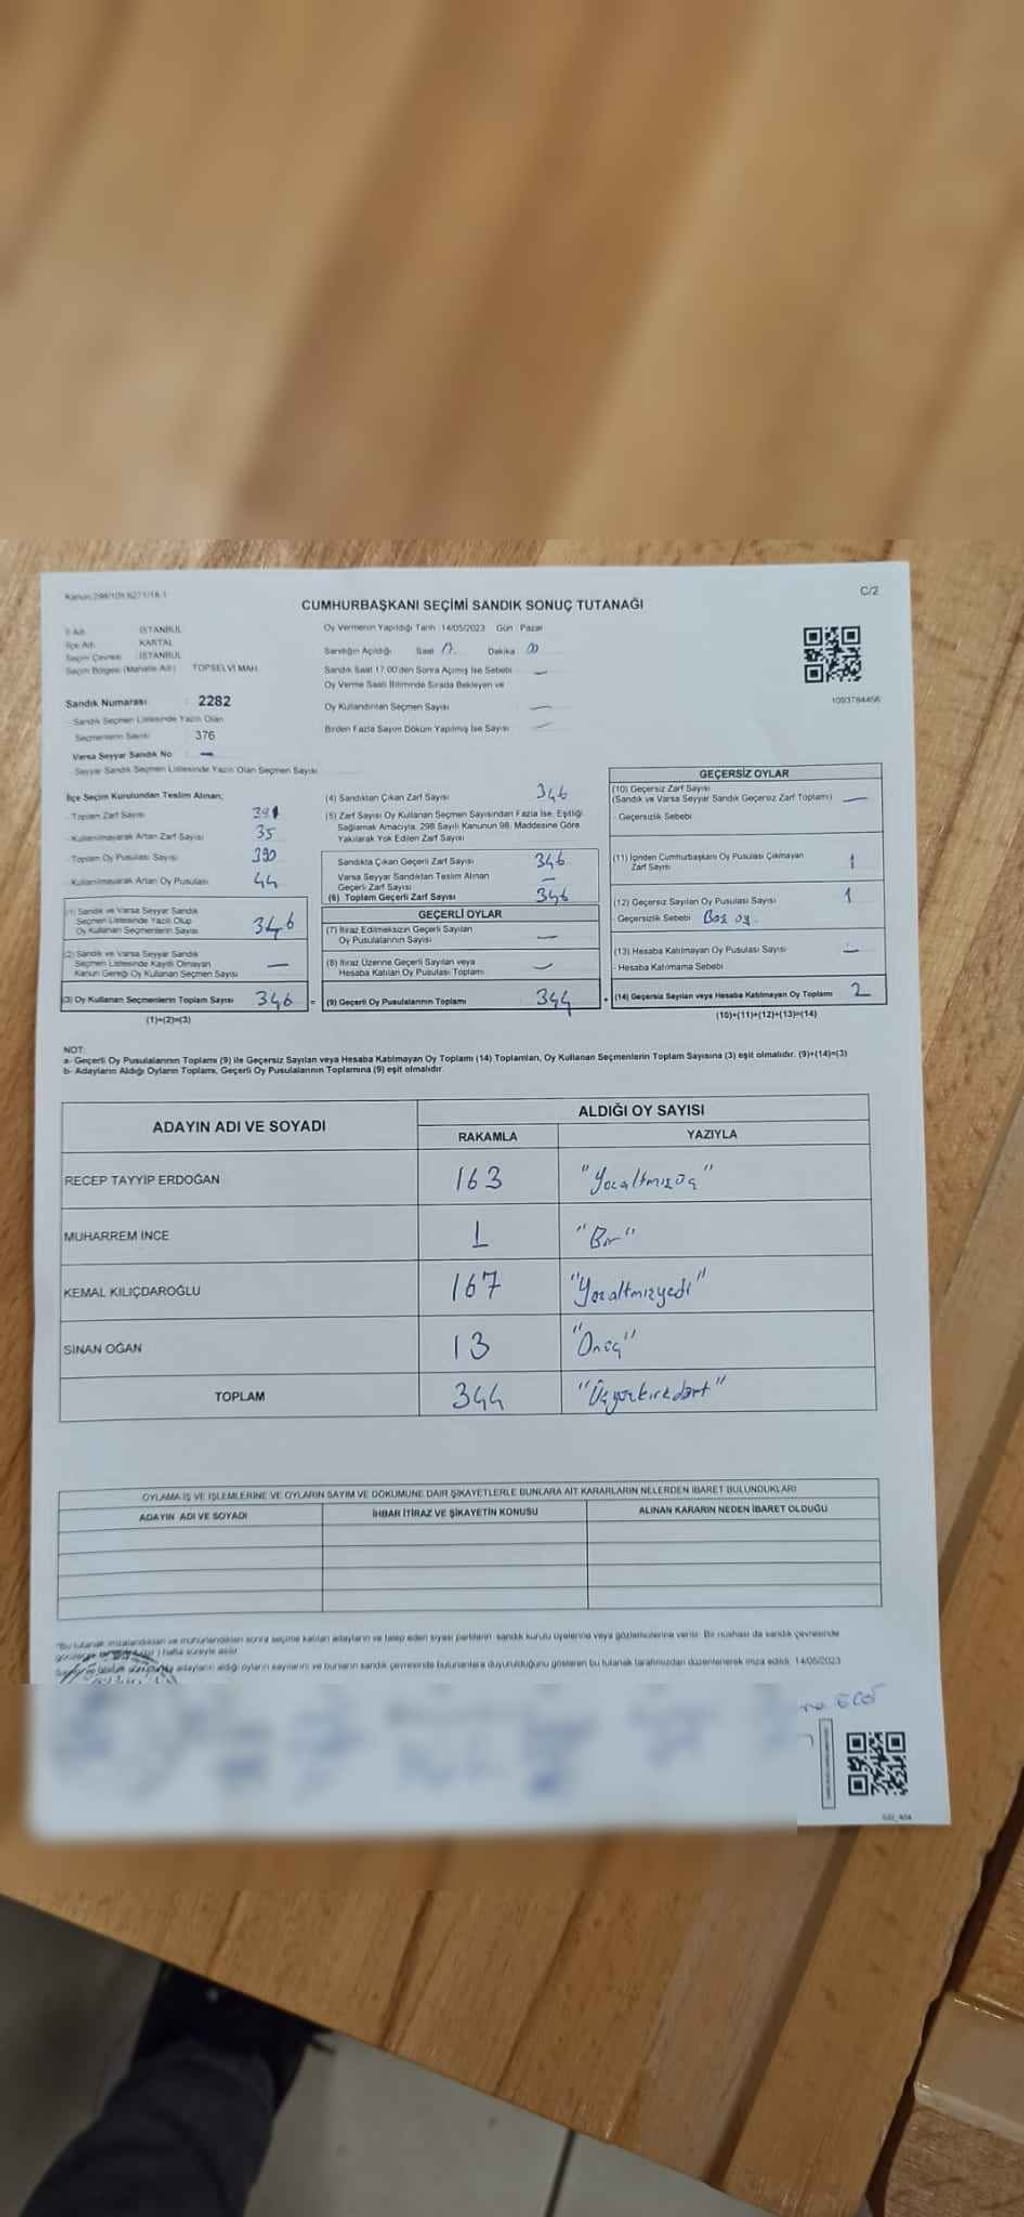 C/2
CUMHURBAŞKANI SEÇİMİ SANDIK SONUÇ TUTANAĞI
İSTANBUL
Oy Vermenin Yapıldığı Tarih 14/05/2023 Gün Pazar
İlçe Adı KARTAL
Sandığın Açıldığı Saat 17 Dakika 00
Seçim Çevresi İSTANBUL
Seçim Bölgesi (Mahalle Adı) TOPSELVİ MAH.
Sandık Saat 17:00'den Sonra Açılmış İse Sebebi —
Oy Verme Saati Bitiminde Sırada Bekleyen ve
Oy Kullandırılan Seçmen Sayısı —
Birden Fazla Sayım Döküm Yapılmış İse Sayısı —
1093784456
Sandık Numarası 2282
Sandık Seçmen Listesinde Yazılı Olan
Seçmenlerin Sayısı 376
Varsa Seyyar Sandık No —
Seyyar Sandık Seçmen Listesinde Yazılı Olan Seçmen Sayısı
İlçe Seçim Kurulundan Teslim Alınan;
Toplam Zarf Sayısı
Kullanılmayarak Artan Zarf Sayısı 35
Toplam Oy Pusulası Sayısı 390
Kullanılmayarak Artan Oy Pusulası 44
(1) Sandık ve Varsa Seyyar Sandık
Seçmen Listesinde Yazılı Olup
Oy Kullanan Seçmenlerin Sayısı 346
(2) Sandık ve Varsa Seyyar Sandık
Seçmen Listesinde Kayıtlı Olmayan
Kanun Gereği Oy Kullanan Seçmen Sayısı —
(3) Oy Kullanan Seçmenlerin Toplam Sayısı 346 =
(1)+(2)=(3)
(4) Sandıktan Çıkan Zarf Sayısı 346
(5) Zarf Sayısı Oy Kullanan Seçmen Sayısından Fazla İse, Eşitliği
Sağlamak Amacıyla, 298 Sayılı Kanunun 98. Maddesine Göre
Yakılarak Yok Edilen Zarf Sayısı —
Sandıkta Çıkan Geçerli Zarf Sayısı 346
Varsa Seyyar Sandıktan Teslim Alınan
Geçerli Zarf Sayısı —
(6) Toplam Geçerli Zarf Sayısı 346
GEÇERLİ OYLAR
(7) İtiraz Edilmeksizin Geçerli Sayılan
Oy Pusulalarının Sayısı —
(8) İtiraz Üzerine Geçerli Sayılan veya
Hesaba Katılan Oy Pusulası Toplamı —
(9) Geçerli Oy Pusulalarının Toplamı 344 +
GEÇERSİZ OYLAR
(10) Geçersiz Zarf Sayısı
(Sandık ve Varsa Seyyar Sandık Geçersiz Zarf Toplamı) —
Geçersizlik Sebebi
(11) İçinden Cumhurbaşkanı Oy Pusulası Çıkmayan
Zarf Sayısı 1
(12) Geçersiz Sayılan Oy Pusulası Sayısı 1
Geçersizlik Sebebi Boş oy.
(13) Hesaba Katılmayan Oy Pusulası Sayısı —
Hesaba Katılmama Sebebi
(14) Geçersiz Sayılan veya Hesaba Katılmayan Oy Toplamı 2
(10)+(11)+(12)+(13)=(14)
NOT:
a- Geçerli Oy Pusulalarının Toplamı (9) ile Geçersiz Sayılan veya Hesaba Katılmayan Oy Toplamı (14) Toplamları, Oy Kullanan Seçmenlerin Toplam Sayısına (3) eşit olmalıdır. (9)+(14)=(3)
b- Adayların Aldığı Oyların Toplamı, Geçerli Oy Pusulalarının Toplamına (9) eşit olmalıdır.
ADAYIN ADI VE SOYADI
ALDIĞI OY SAYISI
RAKAMLA YAZIYLA
RECEP TAYYİP ERDOĞAN 163 "Yüzaltmışüç"
MUHARREM İNCE 1 "Bir"
KEMAL KILIÇDAROĞLU 167 "Yüzaltmışyedi"
SİNAN OĞAN 13 "Onüç"
TOPLAM 344 "Üçyüzkırkdört"
OYLAMA İŞ VE İŞLEMLERİNE VE OYLARIN SAYIM VE DÖKÜMÜNE DAİR ŞİKAYETLERLE BUNLARA AİT KARARLARIN NELERDEN İBARET BULUNDUKLARI
ADAYIN ADI VE SOYADI
İHBAR İTİRAZ VE ŞİKAYETİN KONUSU
ALINAN KARARIN NEDEN İBARET OLDUĞU
"Bu tutanak imzalandıktan ve mühürlendikten sonra seçime katılan adayların ve talep eden siyasi partilerin sandık kurulu üyelerine veya gözlemcilerine verilir. Bir nüshası da sandık çevresinde
1 hafta süreyle asılır
adayların aldığı oyların sayılarını ve bunların sandık çevresinde bulunanlara duyurulduğunu gösteren bu tutanak tarafımızdan düzenlenerek imza edildi. 14/05/2023